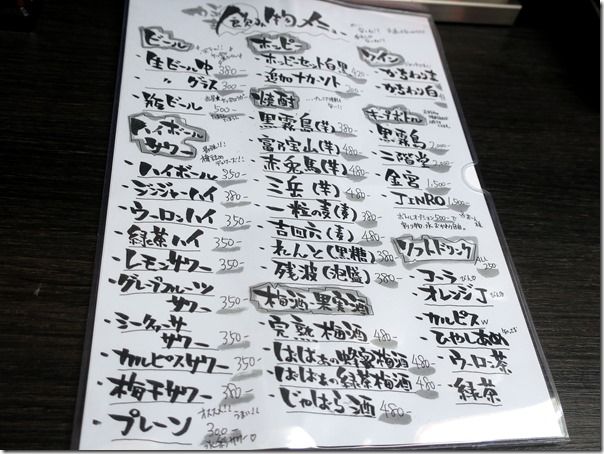 ビール
・生ビール中 380-
・〃 グラス 300-
・瓶ビール 500-
ハイボール
サワー
・ハイボール 350-
・ジンジャーハイ 380-
・ウーロンハイ 350-
・緑茶ハイ 350-
・レモンサワー
・グレープフルーツ
サワー 350-
・シークァーサー
サワー 350-
・カルピスサワー 350-
・梅干サワー 380-
・プレーン 300-
オススメ!! うまい!!
ホッピー
・ホッピーセット白黒 480-
・追加ナカソト
焼酎
・黒霧島(芋) 380-
・富乃宝山(芋) 480-
・赤兎馬(芋) 480-
・三岳(芋) 480-
・一粒の麦(麦) 380-
・吉四六(麦) 480-
・れんと(黒糖) 380-
・残波(泡盛) 380-
梅酒 果実酒
・完熟梅酒 480-
・ばばぁの蜂蜜梅酒 480-
・ばばぁの緑茶梅酒 480-
・じゃばら酒 480-
ワイン
・かちわり赤
・かちわり白
キープボトル
・黒霧島 2,000-
・二階堂 2,000-
・金宮 1,500-
・JINRO 1,500-
ソフトドリンク
ALL
250
・コーラ びん
・オレンジJ びん
・カルピスw
・ひやしあめ
・ウーロン茶
・緑茶